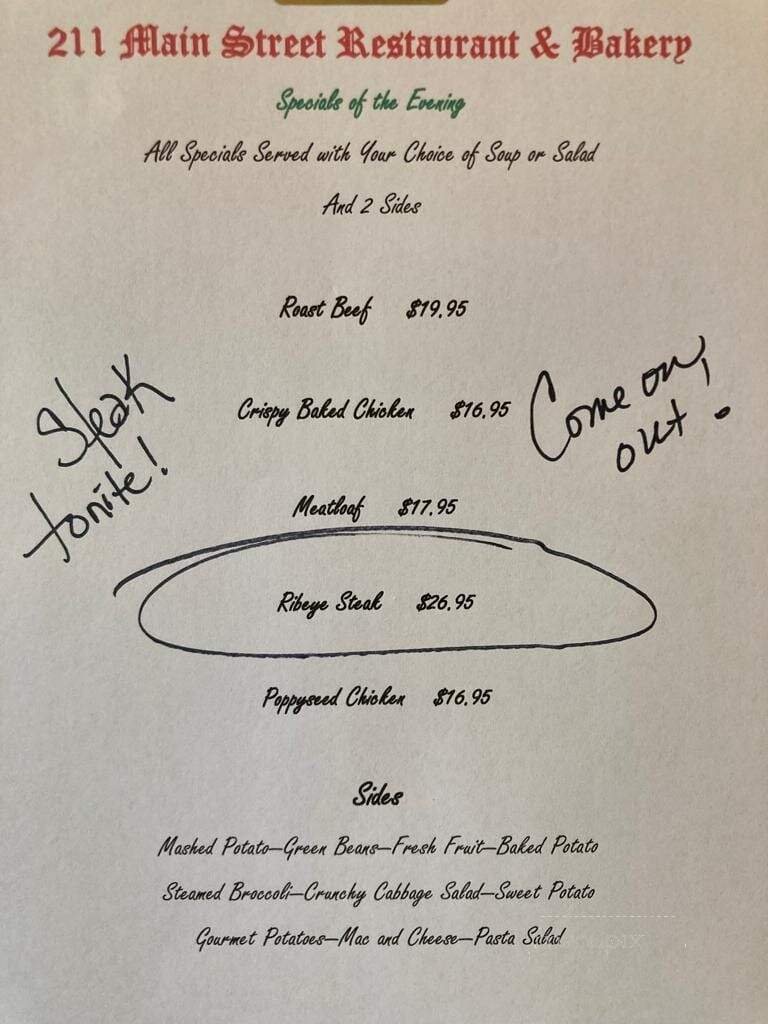 211 Main Street Restaurant & Bakery
Specials of the Evening
All Specials Served with Your Choice of Soup or Salad
And 2 Sides
Roast Beef $19.95
Crispy Baked Chicken $16.95
Steak
tonite!
Come on,
out!
Meatloaf $17.95
Ribeye Steak $26.95
Poppyseed Chicken $16.95
Sides
Mashed Potato—Green Beans—Fresh Fruit—Baked Potato
Steamed Broccoli—Crunchy Cabbage Salad—Sweet Potato
Gourmet Potatoes—Mac and Cheese—Pasta Salad